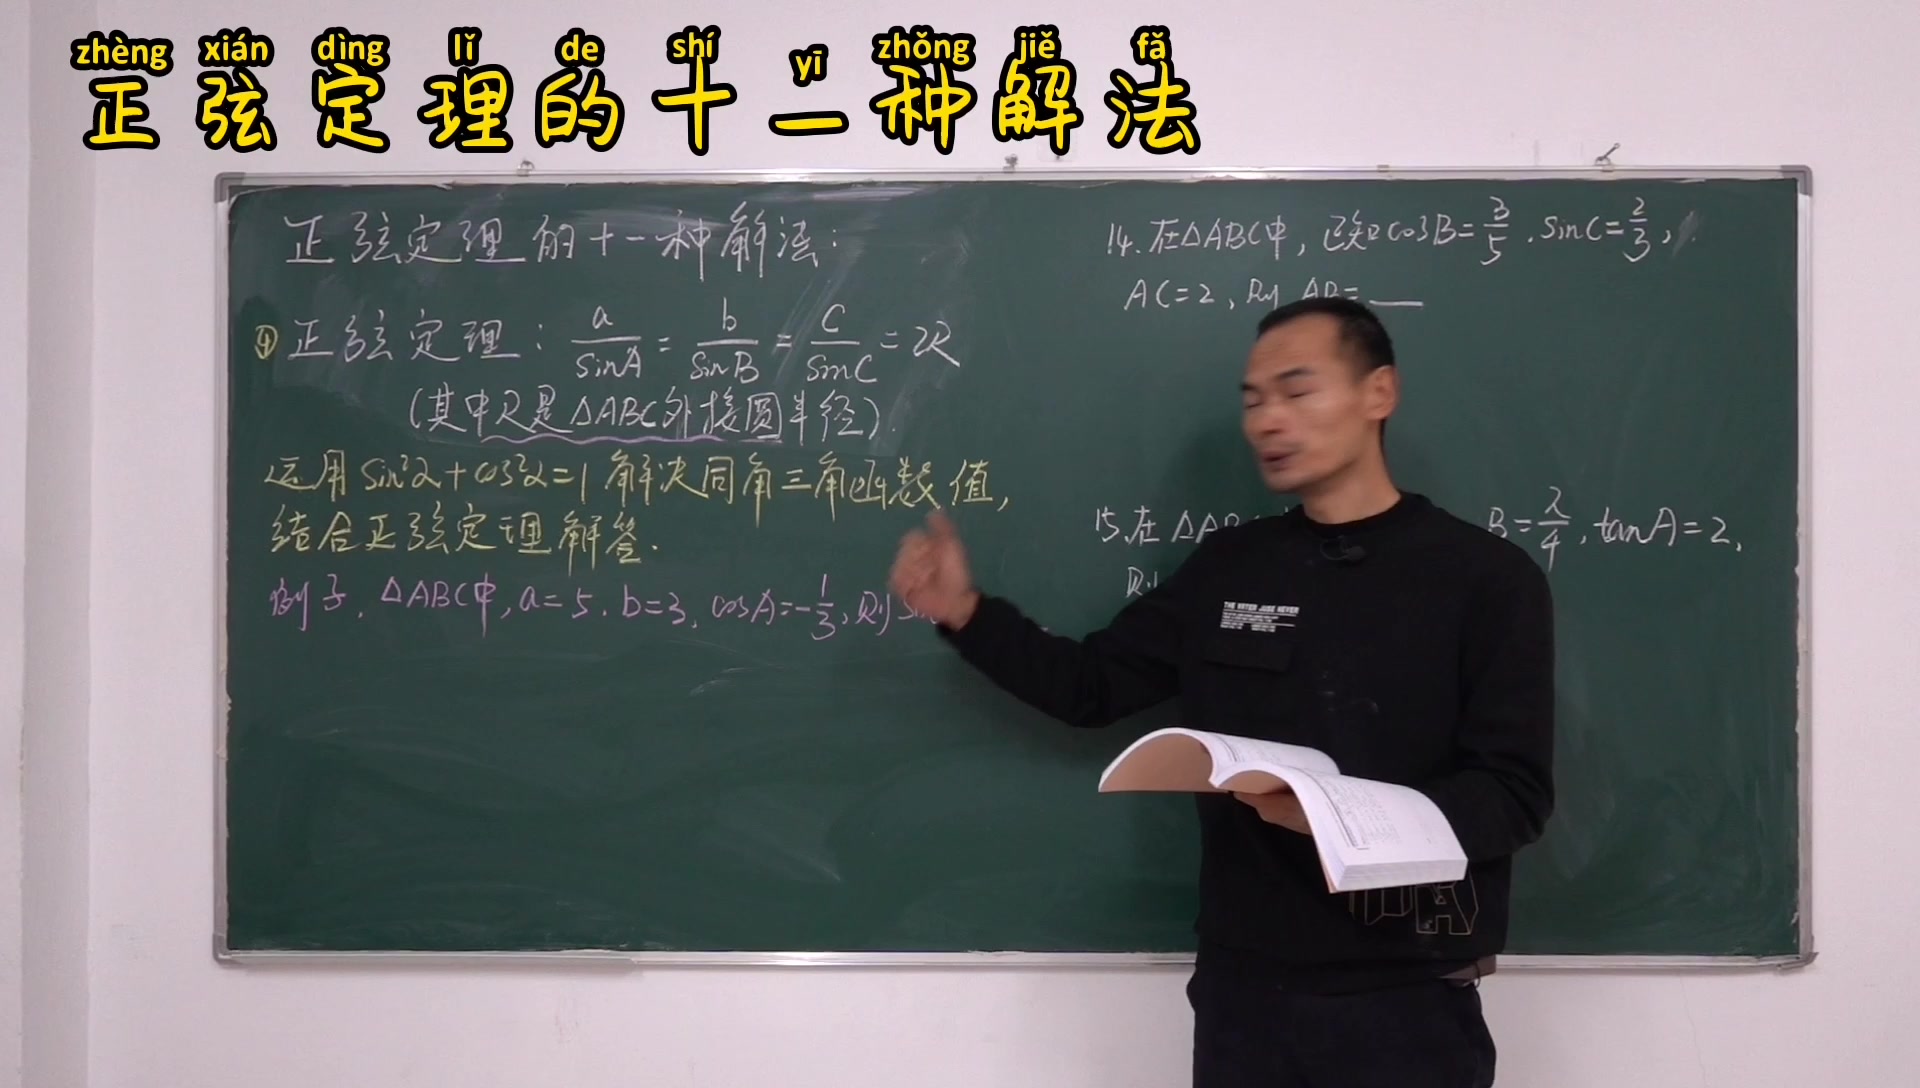 zhèng xián dìng lǐ de shí yī zhǒng jiě fǎ
正弦定理的十一种解法
正弦定理的十一种解法:
④ 正弦定理: a/sinA = b/sinB = c/sinC = 2R
(其中R是△ABC外接圆半径).
运用 sin²α+cos²α=1 解决同角三角函数值,
结合正弦定理解答.
例子. △ABC中, a=5. b=3. cosA=-1/3, 则 si
14. 在△ABC中, 已知cosB=3/5. sinC=2/3,
AC=2, 则 AB=___
15. 在 △AB B=π/4, tanA=2,
则
THE VATER JUSE NEVER